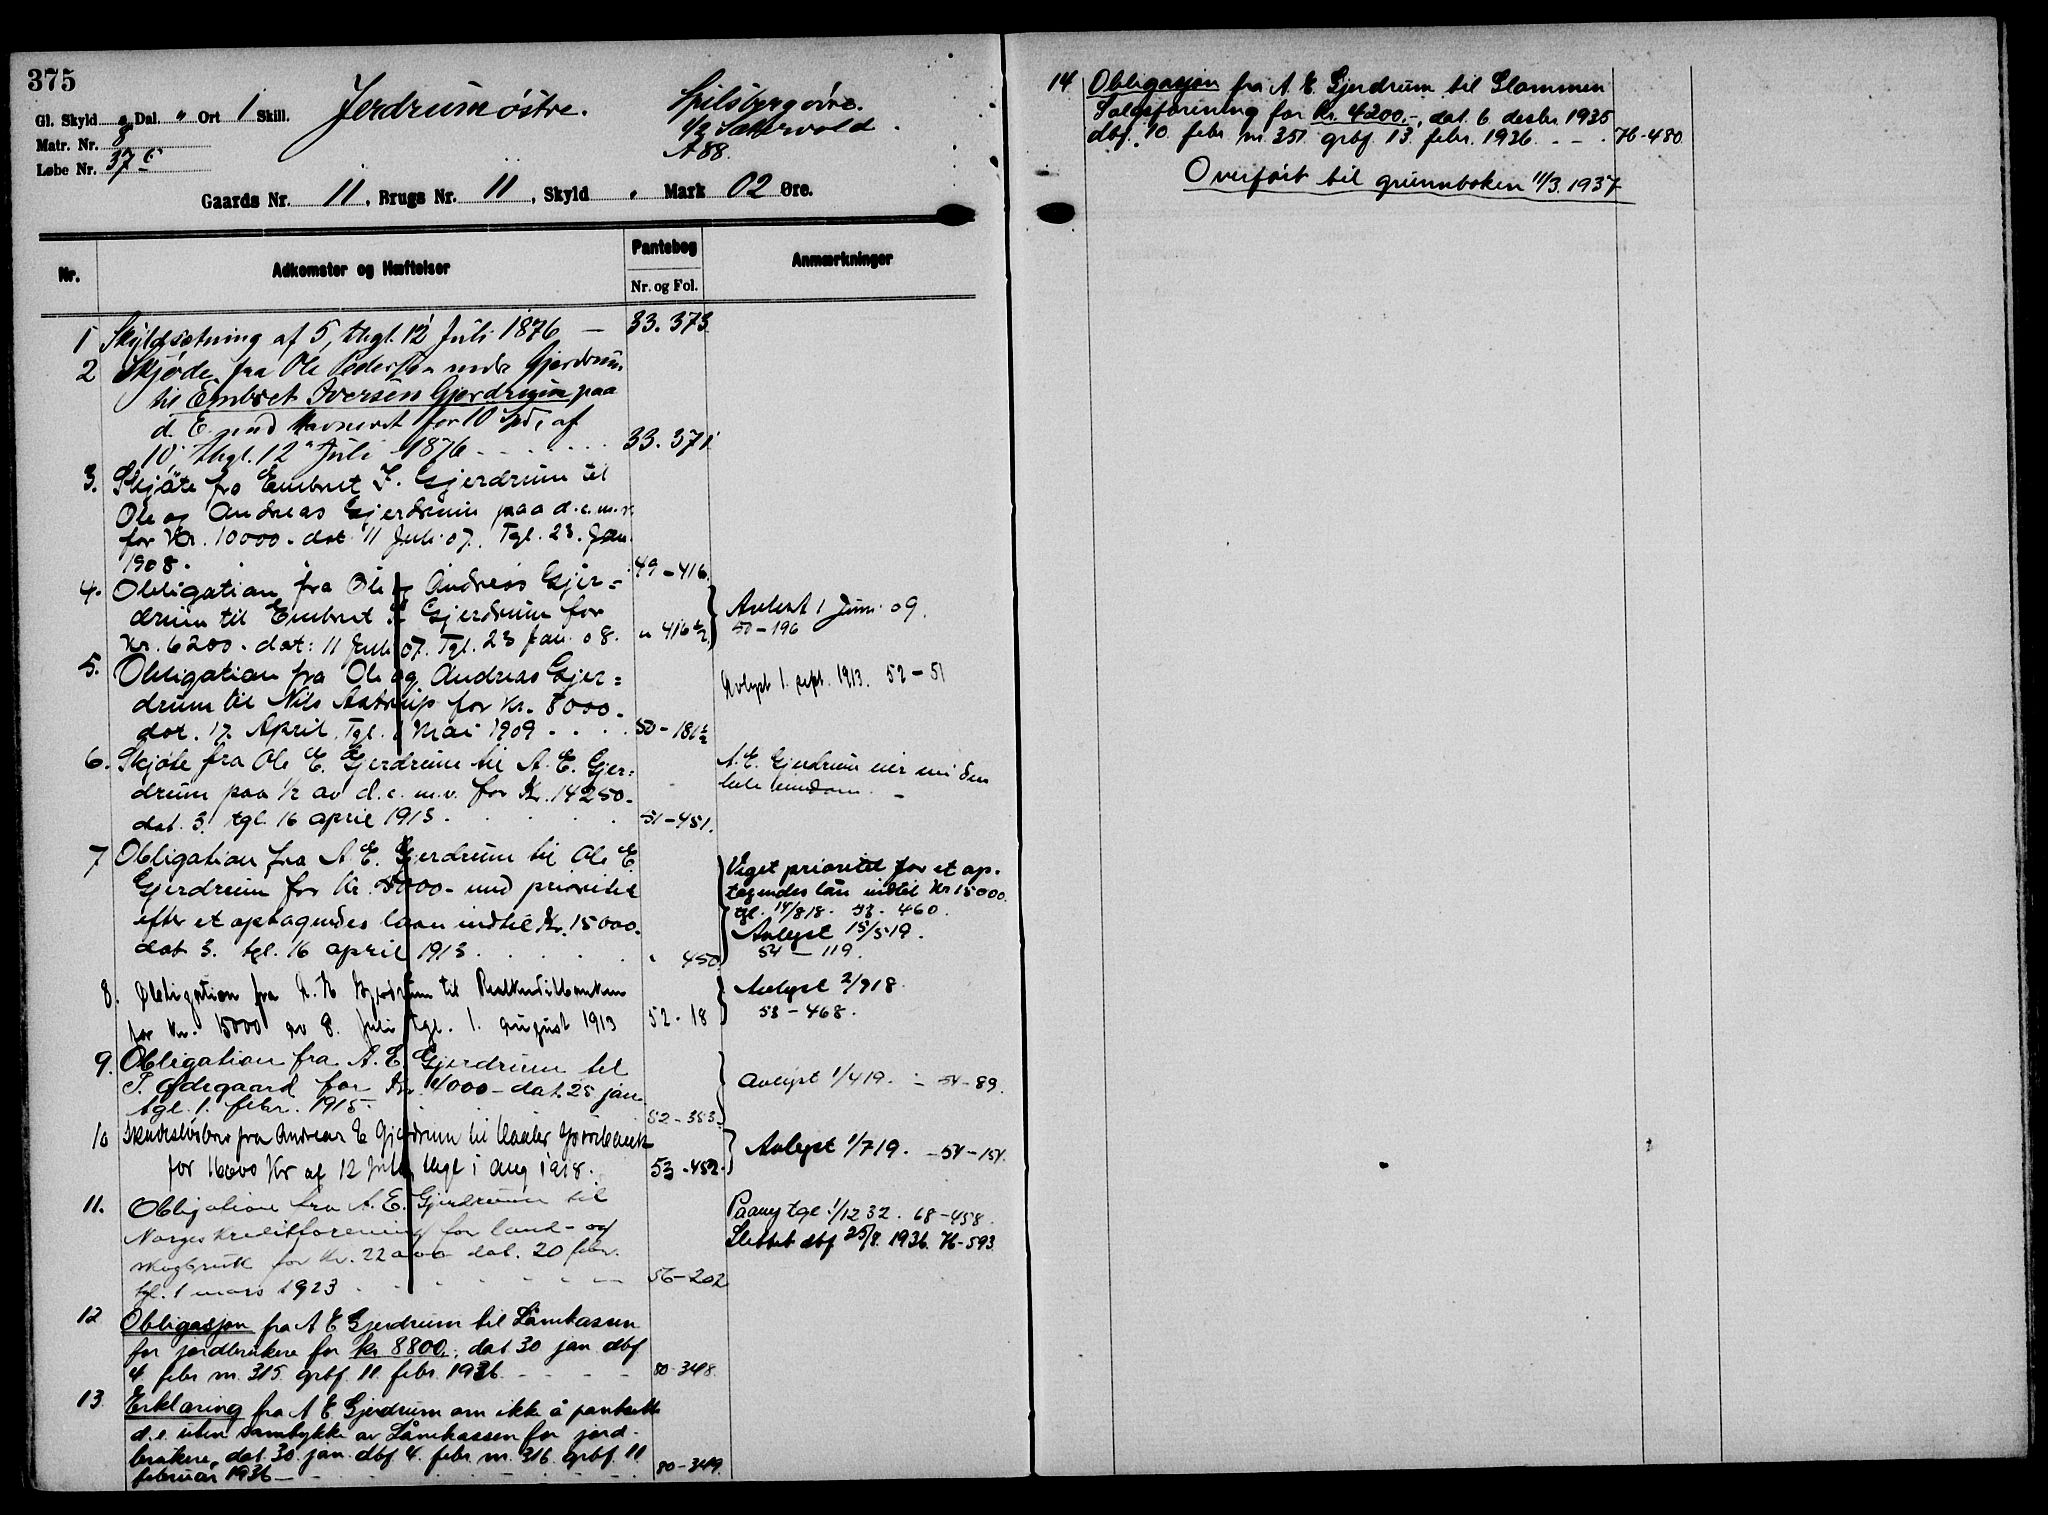 375
Gl. Skyld „ Dal. „ Ort 1 Skill.
Jerdrum østre.
Spilsberg øvre.
1/2 Sætervold.
A 88.
Matr. Nr. 8
Løbe Nr. 37 c
Gaards Nr. 11, Brugs Nr. 11, Skyld , Mark 02 Øre.
Nr.
Adkomster og Hæftelser
Pantebog
Nr. og Fol.
Anmærkninger
1 Skyldsætning af 5, thgl. 12 Juli 1876 — 33. 373
2 Skjøde fra Ole Pedersen Gjerdrum
til Embret Iversen Gjerdrum paa
d. E. med for 10 Spd, af
10, thgl. 12 Juli 1876 - - - 33. 371
3. Skjøte fra Embret I. Gjerdrum til
Ole og Andreas Gjerdrum paa d. e. m. v.
for Kr. 10000 - dat 11 Juli 07. Tgl. 23. Jan.
1908. 49 - 416.
4. Obligation fra Ole og Andreas Gjer=
drum til Embret I. Gjerdrum for
Kr. 6200. dat: 11 Juli 07. Tgl. 23 Jan. 08. " 416 1/2
Avlyst 1 Juni 09.
50 - 196
5. Obligation fra Ole og Andreas Gjer=
drum til Nils Aastrup for Kr. 8000.
dat. 17. April. Tgl. 1 Mai 1909 . . . 50 - 181 1/2
Avlyst 1. sept. 1913. 52 - 51
6. Skjøte fra Ole E. Gjerdrum til A. E. Gjer=
drum paa 1/2 av d. e. m. v. for Kr. 14250.
dat. 3. tgl. 16 april 1913. 51 - 451.
A. E. Gjerdrum eier nu den
hele eiendom. —
7 Obligation fra A. E. Gjerdrum til Ole E.
Gjerdrum for Kr. 8000 - med prioritet
efter et optagendes laan indtil Kr. 15000.
dat 3. tgl. 16 april 1913. " 450
Viget prioritet for et op-
tagendes lån indtil Kr 15000.
tgl. 53 - 460.
Avlyst 15/5 19.
54 - 119.
8. Obligation fra A. E. Gjerdrum til Realkreditbanken
for Kr. 15000 av 8. Juli tgl. 1. august 1913 52 - 18
Avlyst 2/9 18.
53 - 468.
9. Obligation fra A. E. Gjerdrum til
P. Ødegaard for Kr. 4000 - dat. 25 jan.
tgl. 1. febr. 1915. 52 - 353.
Avlyst 1/4 19. - 54 - 89.
10 Skadesløsbrev fra Andreas E Gjerdrum til Vaaler Sparebank
for 16000 Kr af 12 Juli, thgl 1 Aug 1918. 53 - 452.
Avlyst 1/7 19. - 54 - 154.
11. Obligation fra A. E. Gjerdrum til
Norges Kreditforening for land- og
skogbruk for Kr. 22000 dat. 20 febr.
tgl. 1 mars 1923 56 - 202
Paany tgl. 1/12 32. 68 - 458.
Slettet dbf 25/8. 1936. 76 - 593.
12 Obligasjon fra A E Gjerdrum til Lånekassen
for jordbrukere for kr 8800.-, dat 30 jan dbf
4 febr nr. 315 grbf. 11 febr. 1936. - - - 80 - 348.
13 Erklæring fra A E Gjerdrum om ikke å pantsette
d. e. uten samtykke av Lånekassen for jord-
brukere, dat. 30. jan. dbf. 4. febr. nr. 316. grbf. 11
februar 1936 - - - 80 - 349.
14 Obligasjon fra A. E. Gjerdrum til Glommen
Salgsforening for kr. 4200.-, dat. 6. desbr. 1935
dbf. 10. febr nr. 351. grbf. 13. febr. 1936. - - . 76 - 480.
Overført til grunnboken 11/3. 1937